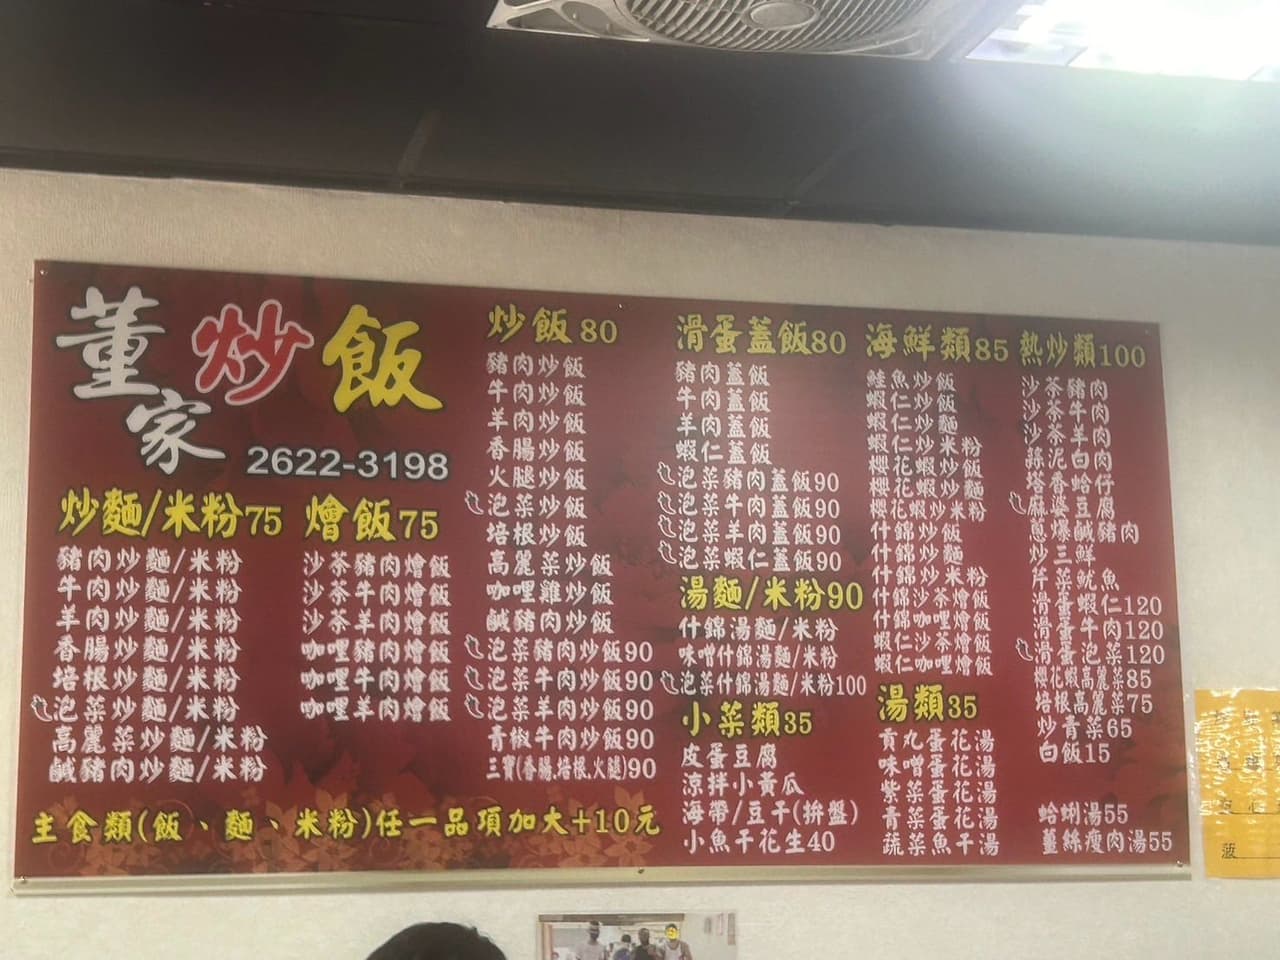 董家炒飯
2622-3198
炒麵/米粉75
豬肉炒麵/米粉
牛肉炒麵/米粉
羊肉炒麵/米粉
香腸炒麵/米粉
培根炒麵/米粉
泡菜炒麵/米粉
高麗菜炒麵/米粉
鹹豬肉炒麵/米粉
燴飯75
沙茶豬肉燴飯
沙茶牛肉燴飯
沙茶羊肉燴飯
咖哩豬肉燴飯
咖哩牛肉燴飯
咖哩羊肉燴飯
主食類(飯、麵、米粉)任一品項加大+10元
炒飯80
豬肉炒飯
牛肉炒飯
羊肉炒飯
香腸炒飯
火腿炒飯
泡菜炒飯
培根炒飯
高麗菜炒飯
咖哩雞炒飯
鹹豬肉炒飯
泡菜豬肉炒飯90
泡菜牛肉炒飯90
泡菜羊肉炒飯90
青椒牛肉炒飯90
三寶(香腸.培根.火腿)90
滑蛋蓋飯80
豬肉蓋飯
牛肉蓋飯
羊肉蓋飯
蝦仁蓋飯
泡菜豬肉蓋飯90
泡菜牛肉蓋飯90
泡菜羊肉蓋飯90
泡菜蝦仁蓋飯90
湯麵/米粉90
什錦湯麵/米粉
味噌什錦湯麵/米粉
泡菜什錦湯麵/米粉100
小菜類35
皮蛋豆腐
涼拌小黃瓜
海帶/豆干(拚盤)
小魚干花生40
海鮮類85
鮭魚炒飯
蝦仁炒飯
蝦仁炒麵
蝦仁炒米粉
櫻花蝦炒飯
櫻花蝦炒麵
櫻花蝦炒米粉
什錦炒飯
什錦炒麵
什錦炒米粉
什錦沙茶燴飯
什錦咖哩燴飯
蝦仁沙茶燴飯
蝦仁咖哩燴飯
湯類35
貢丸蛋花湯
味噌蛋花湯
紫菜蛋花湯
青菜蛋花湯
蔬菜魚干湯
熱炒類100
沙茶豬肉
沙茶牛肉
沙茶羊肉
蒜泥白肉
塔香蛤仔
麻婆豆腐
蔥爆鹹豬肉
炒三鮮
芹菜魷魚
滑蛋蝦仁120
滑蛋牛肉120
滑蛋泡菜120
櫻花蝦高麗菜85
培根高麗菜75
炒青菜65
白飯15
蛤蜊湯55
薑絲瘦肉湯55